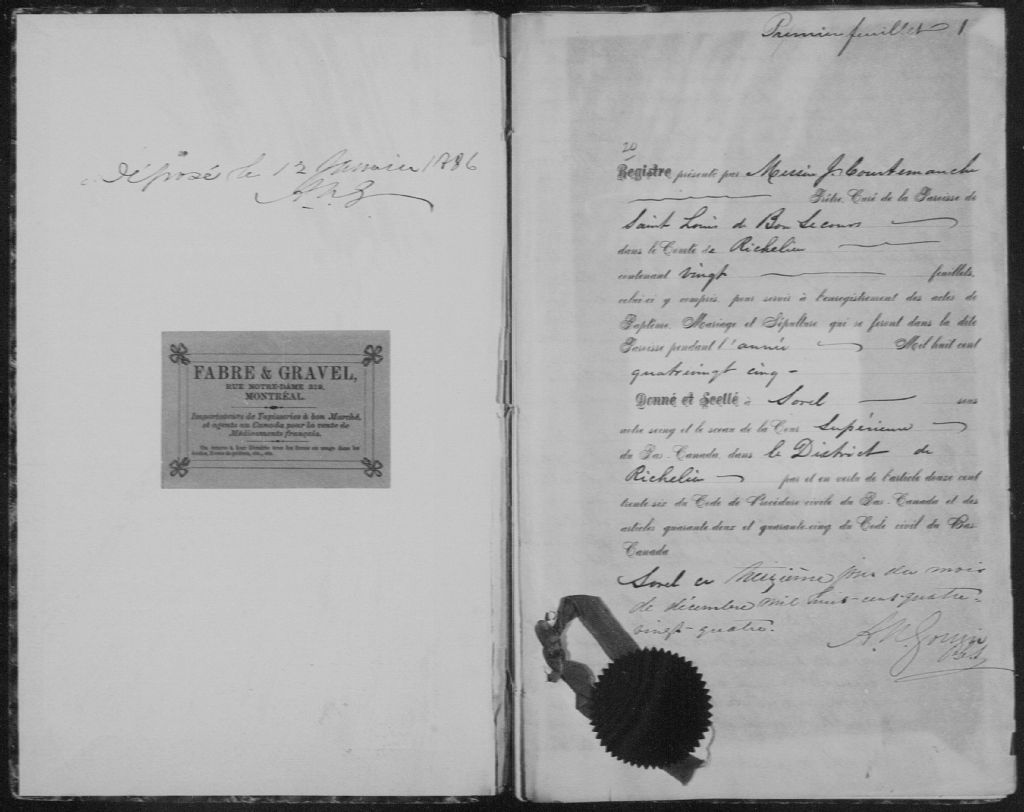 Déposé le 12 Janvier 1886
FABRE & GRAVEL,
RUE NOTRE-DAME 219,
MONTRÉAL.
Importateurs de Tapisseries à bon Marché,
et agents au Canada pour la vente de
Médicaments français.
On trouve à leur librairie tous les livres en usage dans les
écoles, livres de prières, etc., etc.
Premier feuillet 1
20
Registre présenté par Messire J. Courtemanche
Prêtre, Curé de la Paroisse de
Saint Louis de Bon Secours
dans le Comté de Richelieu
contenant vingt feuillets,
celui-ci y compris, pour servir à l'enregistrement des actes de
Baptême, Mariage et Sépulture qui se feront dans la dite
Paroisse pendant l'année Mil huit cent
quatrevingt cinq -
Donné et Scellé à Sorel sous
notre seing et le sceau de la Cour Supérieure
du Bas-Canada, dans le District de
Richelieu par et en vertu de l'article douze cent
trente-six du Code de Procédure civile du Bas-Canada et des
articles quarante-deux et quarante-cinq du Code civil du Bas-
Canada
Sorel ce treizième jour du mois
de décembre mil huit-cent-quatre-
vingt-quatre.
A. N. Gouin